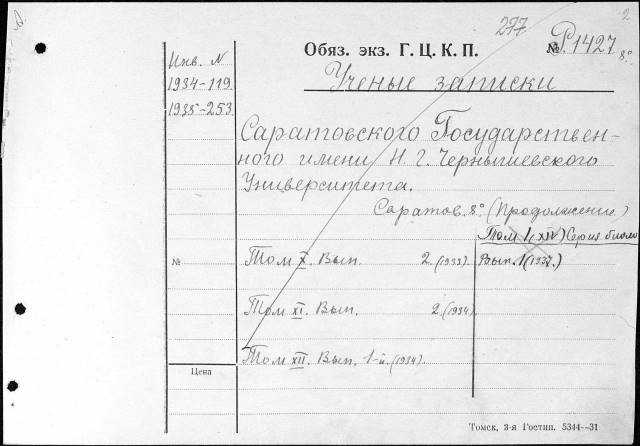 277
2
Обяз. экз. Г. Ц. К. П. № Р.1427 8°
Инв. N
1934-119
1935-253
Ученые записки
Саратовского Государствен-
ного имени Н. Г. Чернышевского
Университета.
Саратов. 8° (Продолжение)
Том I (XIV) Серия биоло
№ Том X. Вып. 2. (1933) Вып. 1 (1937.)
Том XI. Вып. 2. (1934)
Том XII. Вып. 1-й. (1934).
Цена
Томск, 3-я Гостип. 5344—31